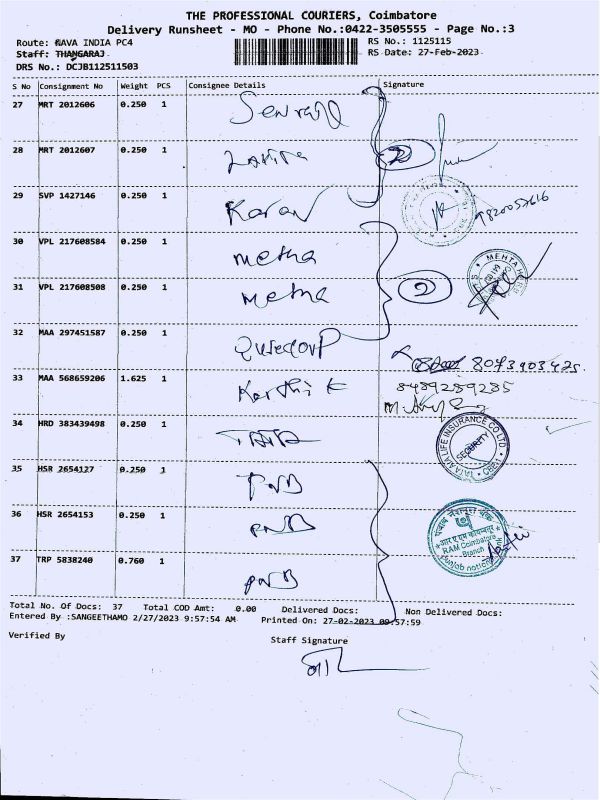 THE PROFESSIONAL COURIERS, Coimbatore
Delivery Runsheet - MO - Phone No.:0422-3505555 - Page No.:3
Route: NAVA INDIA PC4
RS No.: 1125115
Staff: THANGARAJ
RS Date: 27-Feb-2023
DRS No.: DCJB112511503
S No Consignment No Weight PCS Consignee Details Signature
27 MRT 2012606 0.250 1
28 MRT 2012607 0.250 1
29 SVP 1427146 0.250 1 Karan
30 VPL 217608584 0.250 1 metha
31 VPL 217608508 0.250 1 metha 2
32 MAA 297451587 0.250 1
8073903425
33 MAA 568659206 1.625 1 Karthik 8489289285
34 HRD 383439498 0.250 1 TATA
TATA AIA LIFE INSURANCE CO LTD CBE SECURITY
35 HSR 2654127 0.250 1 PNB
36 HSR 2654153 0.250 1 PNB
RAM Coimbatore Branch
37 TRP 5838240 0.760 1 PNB
Total No. Of Docs: 37 Total COD Amt: 0.00 Delivered Docs: Non Delivered Docs:
Entered By :SANGEETHAMO 2/27/2023 9:57:54 AM Printed On: 27-02-2023 09:57:59
Verified By Staff Signature